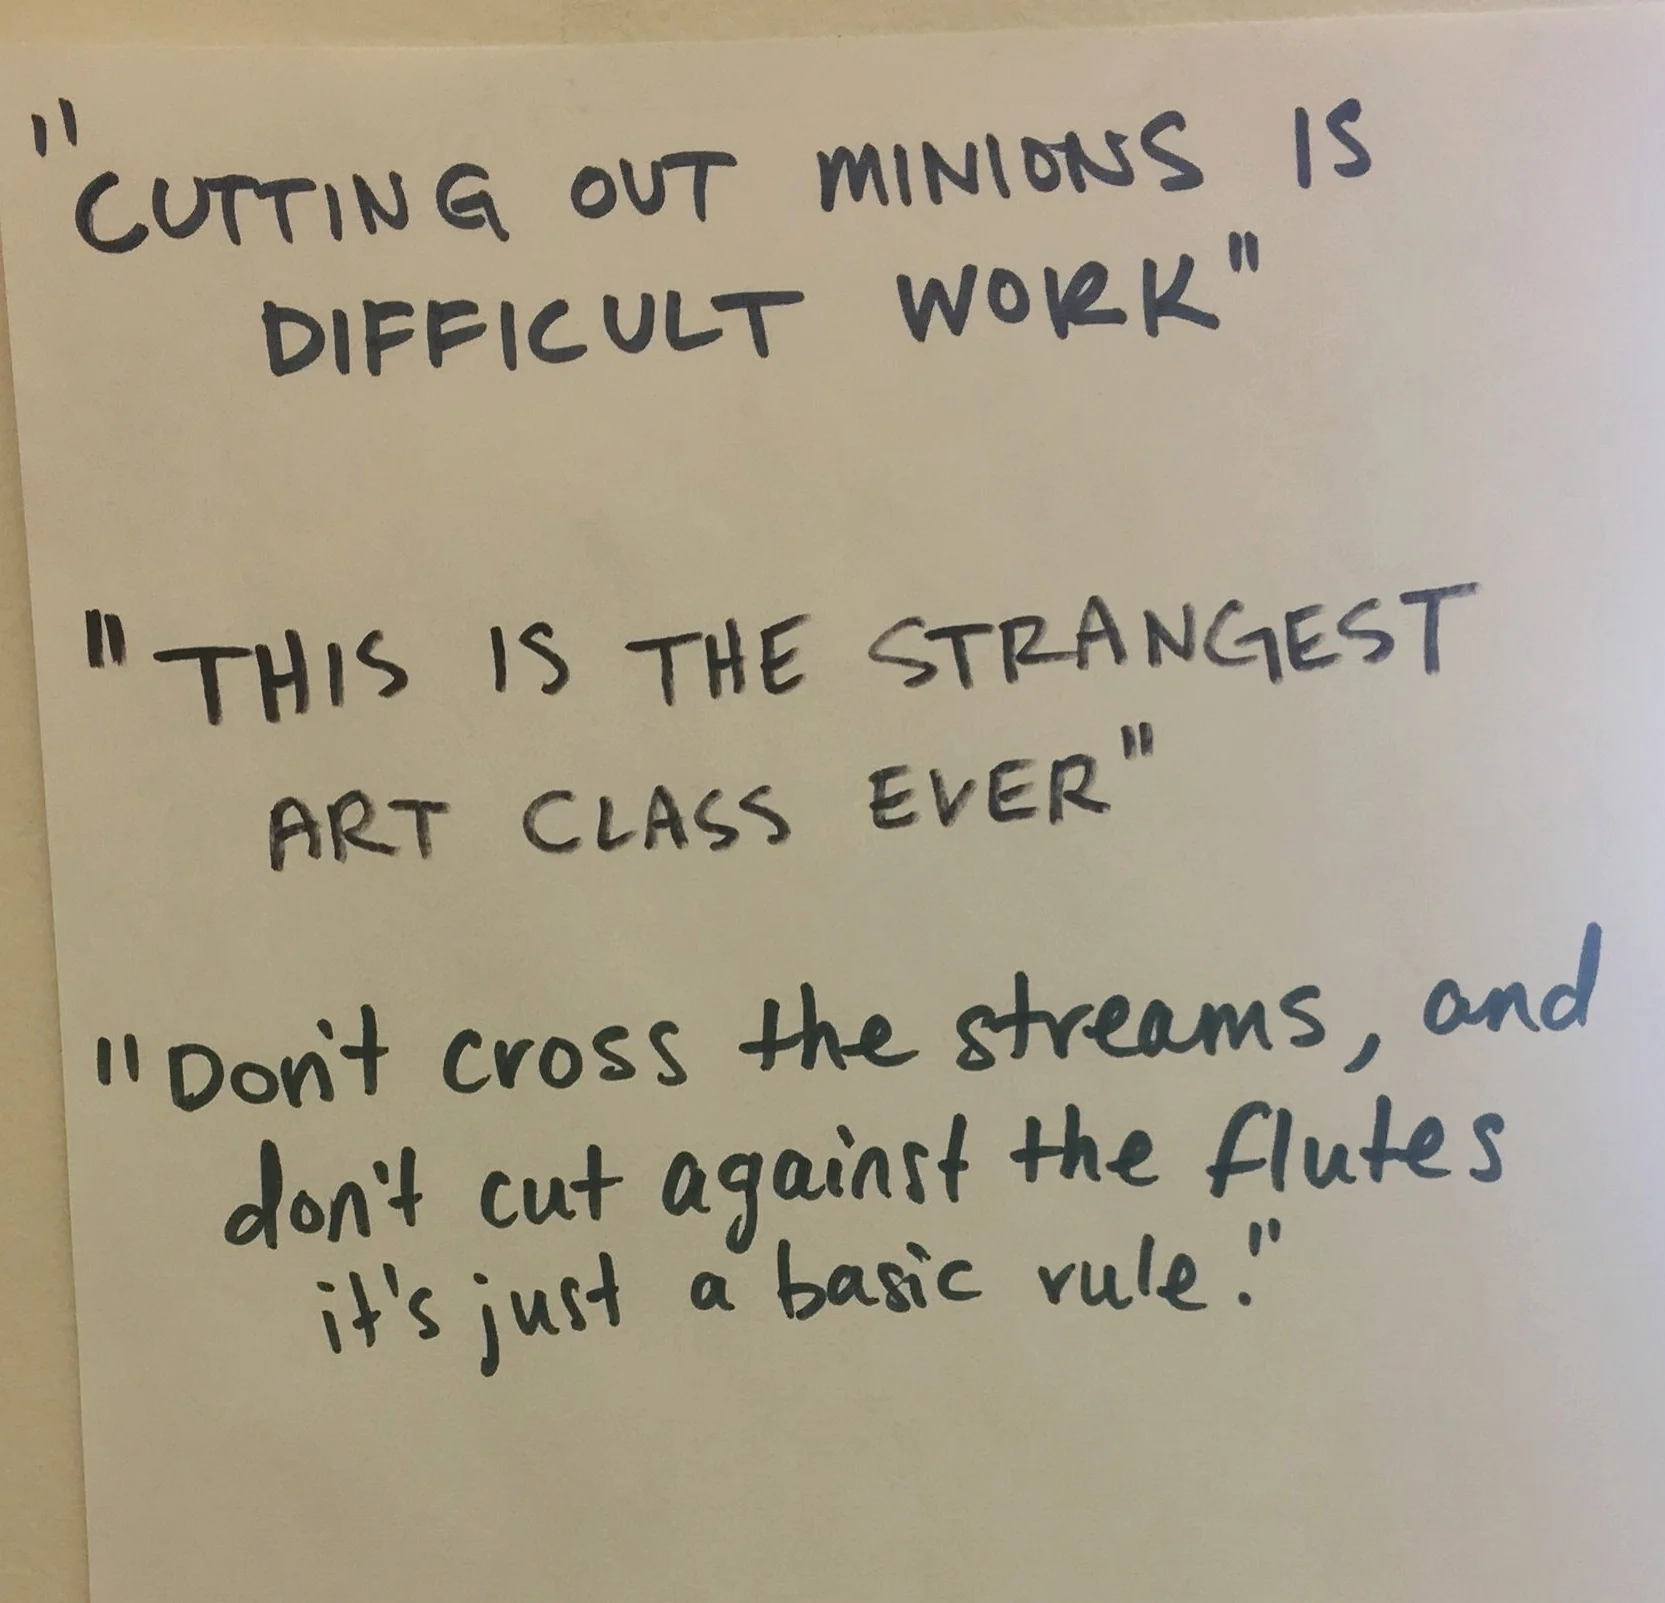 "CUTTING OUT MINIONS IS
DIFFICULT WORK"
"THIS IS THE STRANGEST
ART CLASS EVER"
"Don't cross the streams, and
don't cut against the flutes
it's just a basic rule."